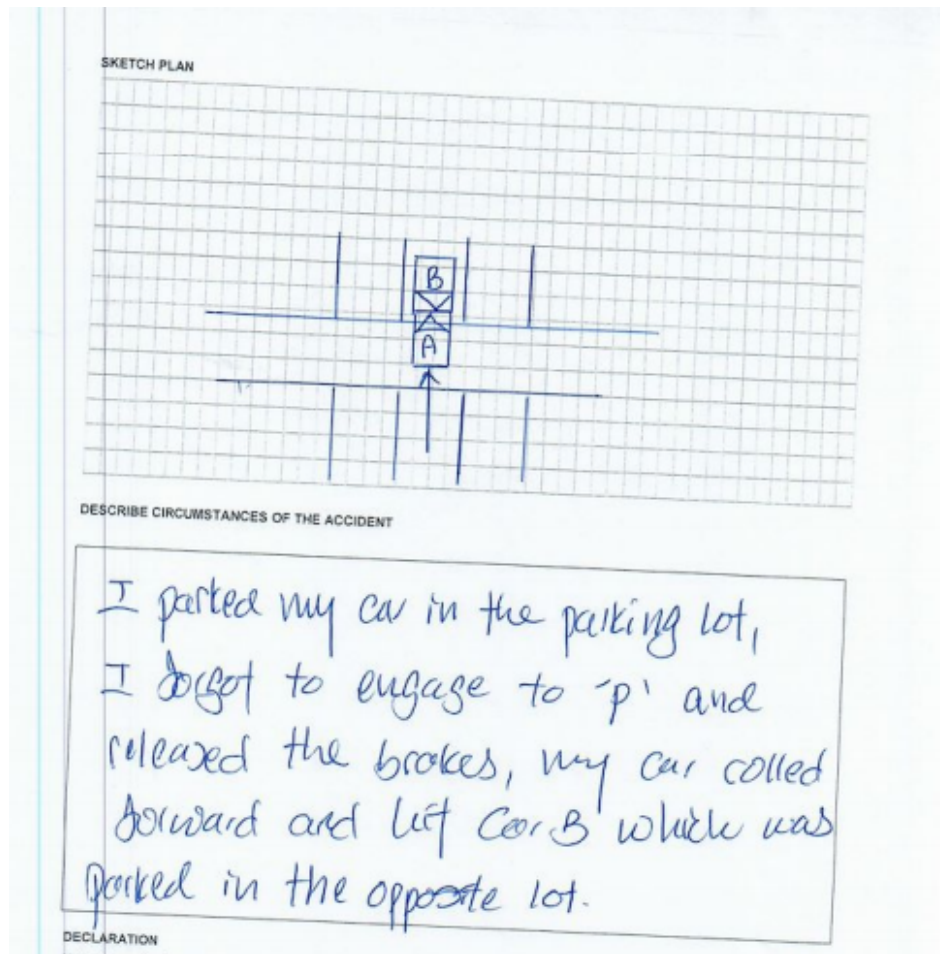 SKETCH PLAN
B
A
DESCRIBE CIRCUMSTANCES OF THE ACCIDENT
I parked my car in the parking lot,
I forgot to engage to 'p' and
released the brakes, my car rolled
forward and hit Car B which was
parked in the opposite lot.
DECLARATION